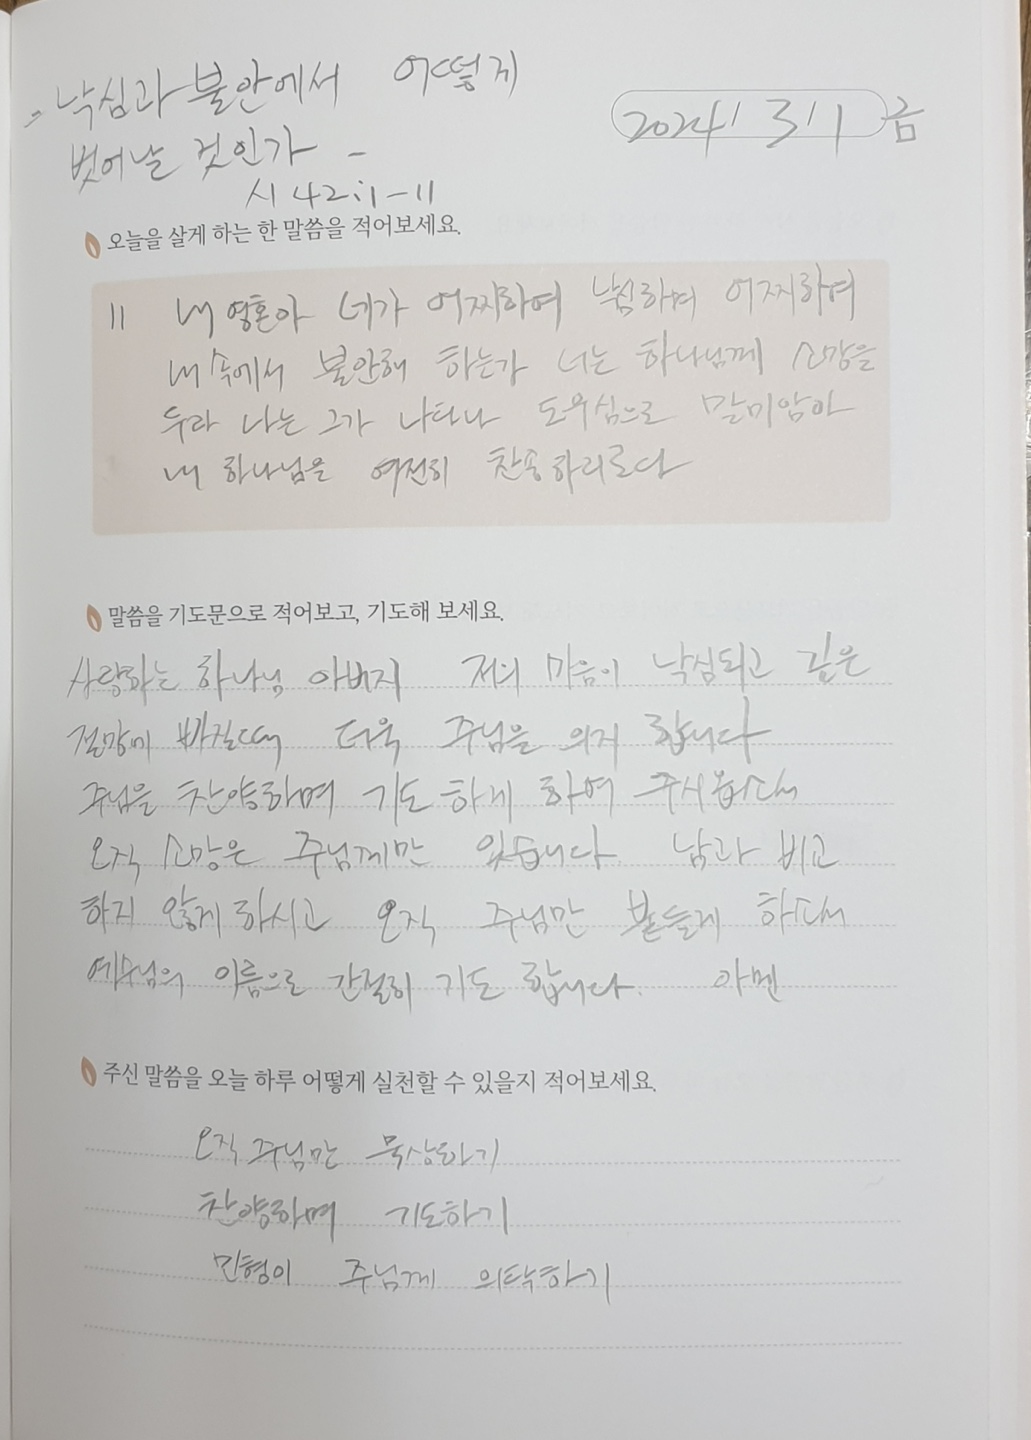 - 낙심과 불안에서 어떻게
벗어날 것인가 -
2024 / 3 / 1 금
시 42:1-11
오늘을 살게 하는 한 말씀을 적어보세요.
11 내 영혼아 네가 어찌하여 낙심하며 어찌하여
내 속에서 불안해 하는가 너는 하나님께 소망을
두라 나는 그가 나타나 도우심으로 말미암아
내 하나님을 여전히 찬송하리로다
말씀을 기도문으로 적어보고, 기도해 보세요.
사랑하는 하나님 아버지 저의 마음이 낙심되고 깊은
절망에 빠질때 더욱 주님을 의지 합니다
주님을 찬양하며 기도 하게 하여 주시옵소서
오직 소망은 주님께만 있습니다 남과 비교
하지 않게 하시고 오직 주님만 붙들게 하소서
예수님의 이름으로 간절히 기도 합니다. 아멘
주신 말씀을 오늘 하루 어떻게 실천할 수 있을지 적어보세요.
오직 주님만 묵상하기
찬양하며 기도하기
민형이 주님께 의탁하기